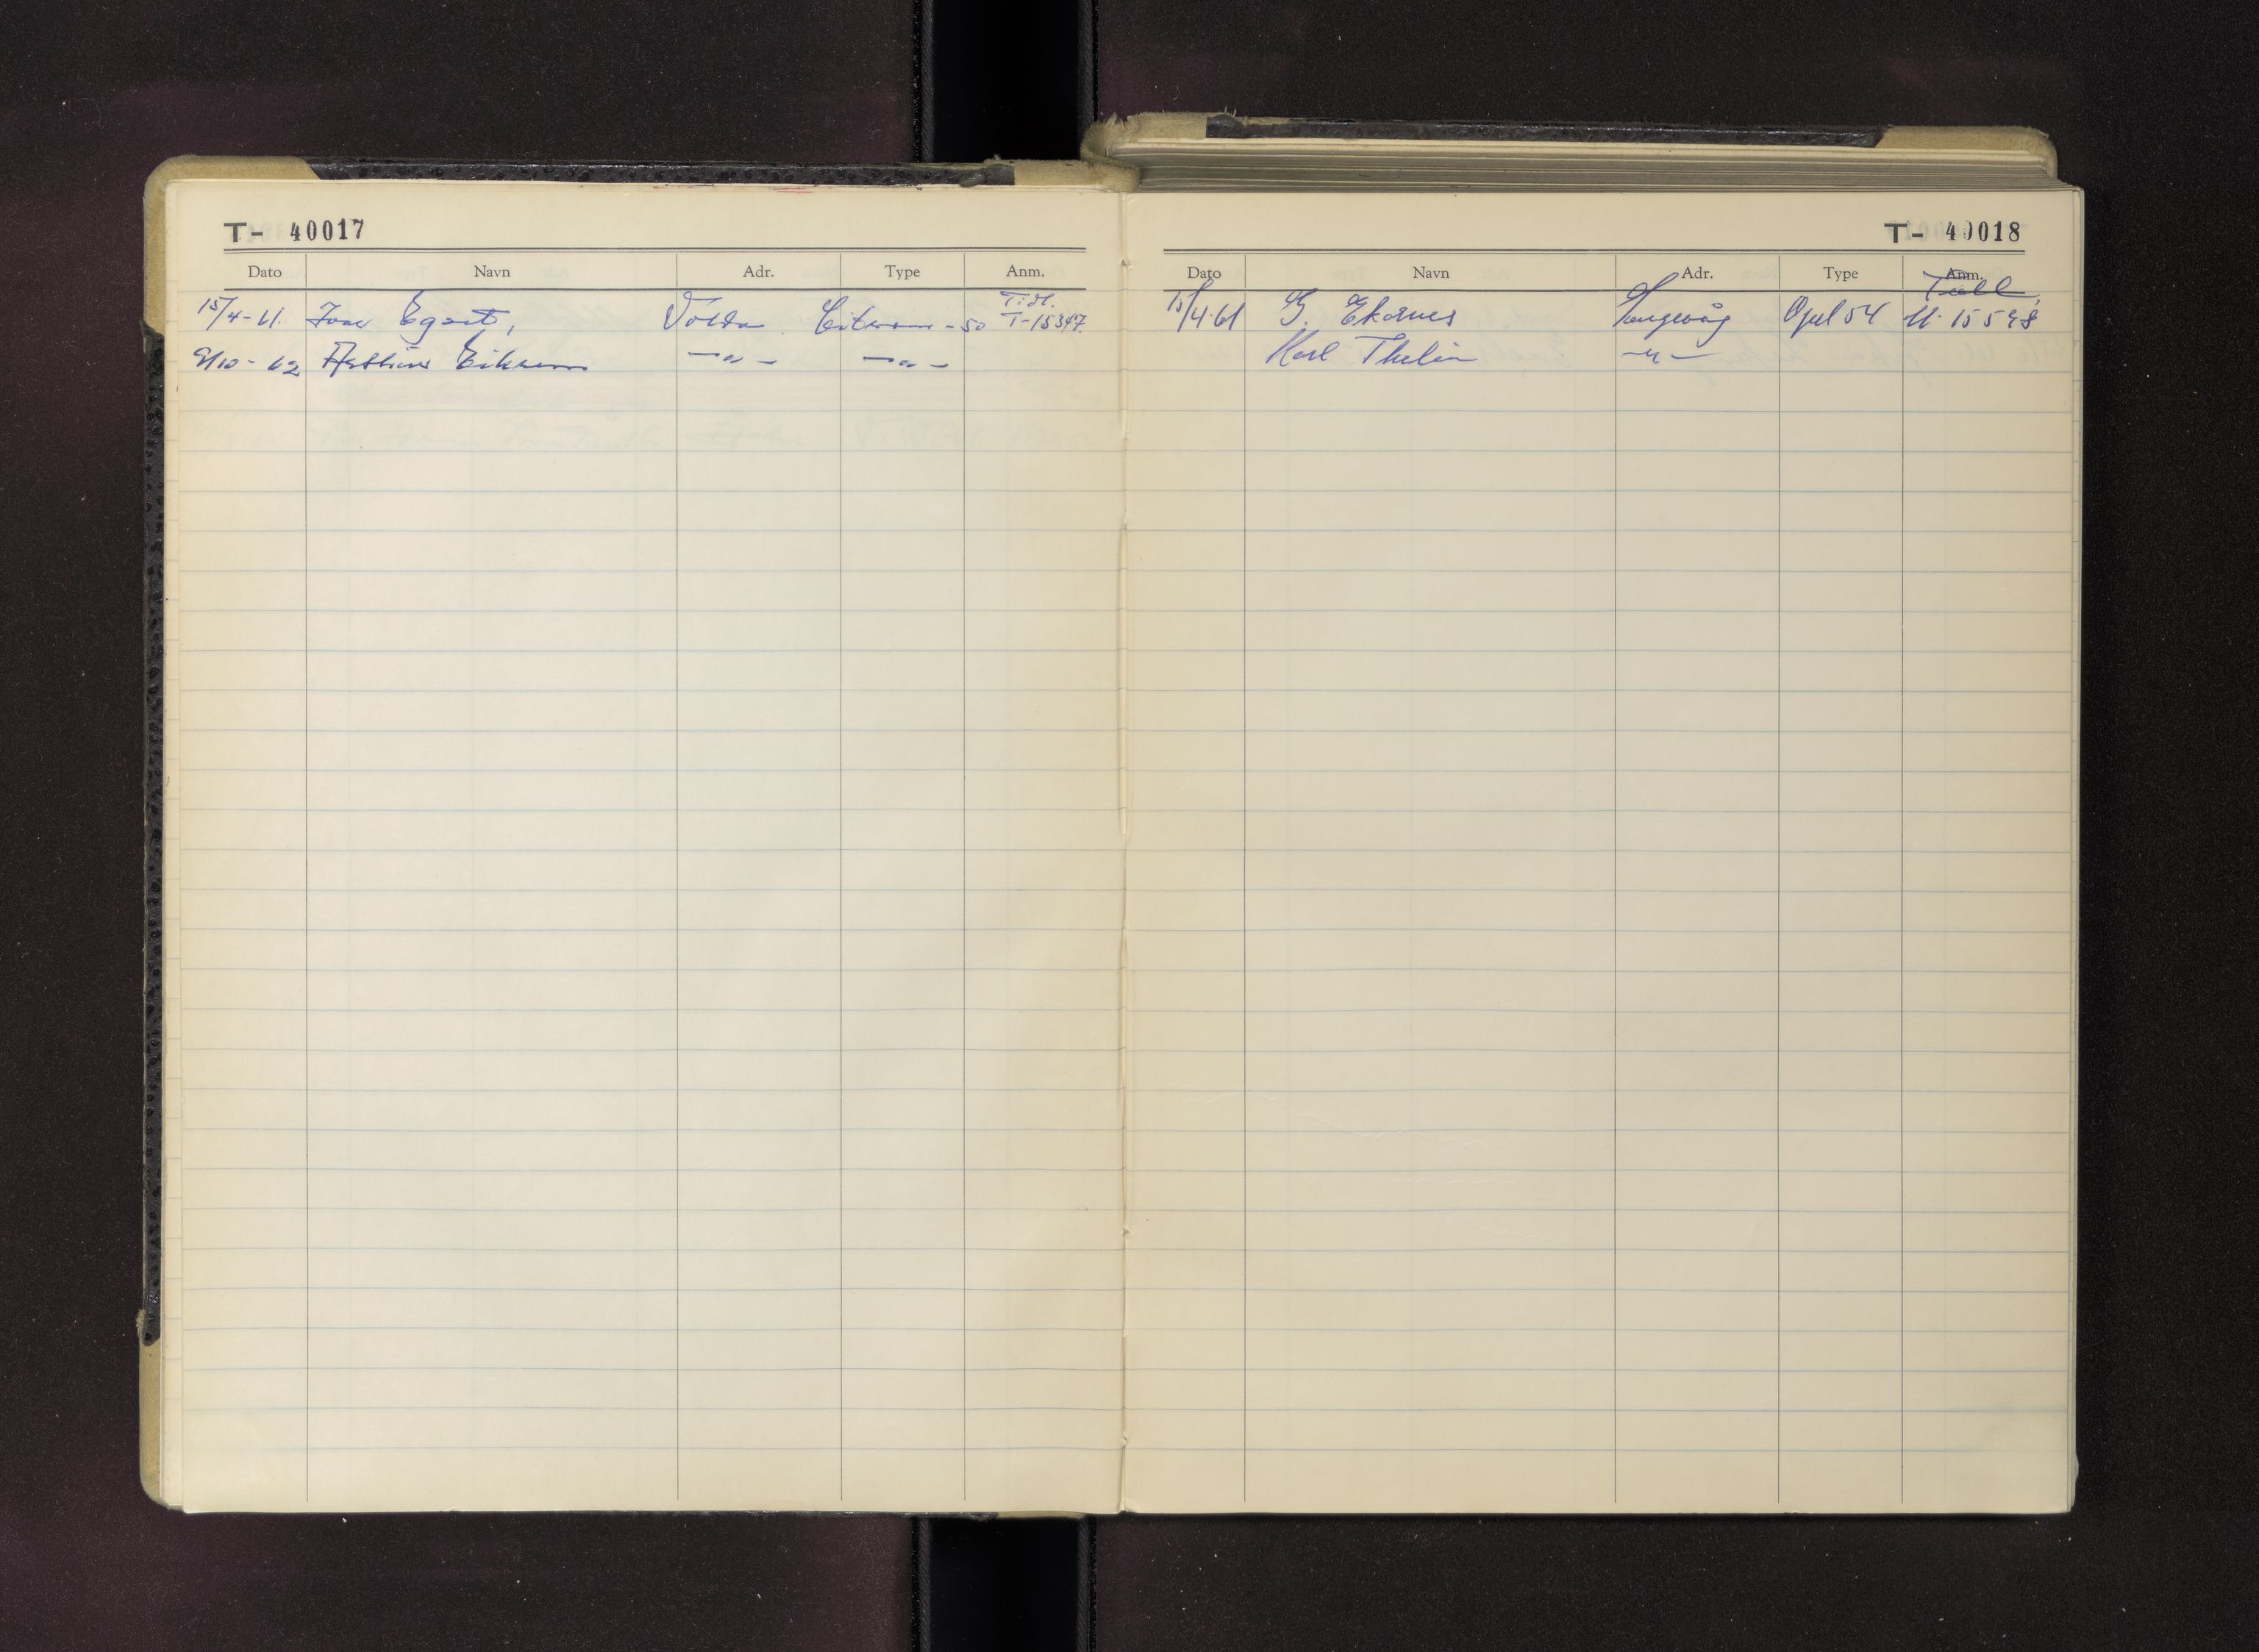 T- 40017
Dato Navn Adr. Type Anm.
15/4-61. Ivar Egset, Volda Citroen-50 Tidl. T-15347.
9/10-62 Eiksund —"— —"—
T- 40018
Dato Navn Adr. Type Anm.
15/4-61 G. Ekornes Langevåg Opel 54 U-15598
Karl Thelin —"—